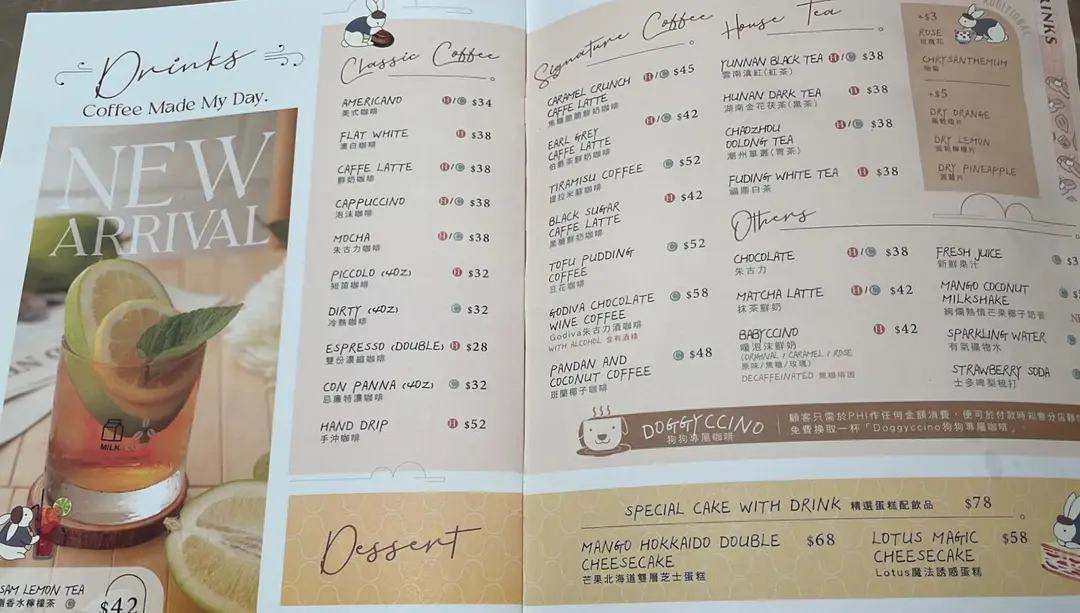 Drinks
Coffee Made My Day.
NEW
ARRIVAL
MILK
SAM LEMON TEA
香水檸檬茶 C $42
Classic Coffee
AMERICANO H/C $34
美式咖啡
FLAT WHITE H $38
濃白咖啡
CAFFE LATTE H/C $38
鮮奶咖啡
CAPPUCCINO H/C $38
泡沫咖啡
MOCHA H/C $38
朱古力咖啡
PICCOLO (4OZ) H $32
短笛咖啡
DIRTY (4OZ) C $32
冷熱咖啡
ESPRESSO (DOUBLE) H $28
雙份濃縮咖啡
CON PANNA (4OZ) C $32
忌廉特濃咖啡
HAND DRIP H $52
手沖咖啡
Signature Coffee
CARAMEL CRUNCH H/C $45
CAFFE LATTE
焦糖脆脆鮮奶咖啡
EARL GREY H/C $42
CAFFE LATTE
伯爵茶鮮奶咖啡
TIRAMISU COFFEE C $52
提拉米蘇咖啡
BLACK SUGAR H $42
CAFFE LATTE
黑糖鮮奶咖啡
TOFU PUDDING C $52
COFFEE
豆花咖啡
GODIVA CHOCOLATE C $58
WINE COFFEE
Godiva朱古力酒咖啡
WITH ALCOHOL 含有酒精
PANDAN AND C $48
COCONUT COFFEE
斑蘭椰子咖啡
House Tea
YUNNAN BLACK TEA H/C $38
雲南滇紅(紅茶)
HUNAN DARK TEA H $38
湖南金花茯茶(黑茶)
CHAOZHOU H/C $38
OOLONG TEA
潮州單叢(青茶)
FUDING WHITE TEA H $38
福鼎白茶
+$3
ROSE
玫瑰花
CHRYSANTHEMUM
+$5
DRY ORANGE
DRY LEMON
DRY PINEAPPLE
RINKS
Others
CHOCOLATE H/C $38
朱古力
MATCHA LATTE H/C $42
抹茶鮮奶
BABYCCINO H $42
暖泡沫鮮奶
(ORIGINAL / CARAMEL / ROSE
原味/焦糖/玫瑰)
DECAFFEINATED 無咖啡因
FRESH JUICE C $3
新鮮果汁
MANGO COCONUT C
MILKSHAKE
絢爛熱情芒果椰子奶昔
SPARKLING WATER C
有氣礦物水
STRAWBERRY SODA C
士多啤梨梳打
DOGGYCCINO
狗狗專屬咖啡
顧客只需於PHI作任何金額消費，便可於付款時知會分店
免費換取一杯「Doggyccino狗狗專屬咖啡」。
Dessert
SPECIAL CAKE WITH DRINK 精選蛋糕配飲品 $78
MANGO HOKKAIDO DOUBLE $68
CHEESECAKE
芒果北海道雙層芝士蛋糕
LOTUS MAGIC $58
CHEESECAKE
Lotus魔法誘惑蛋糕